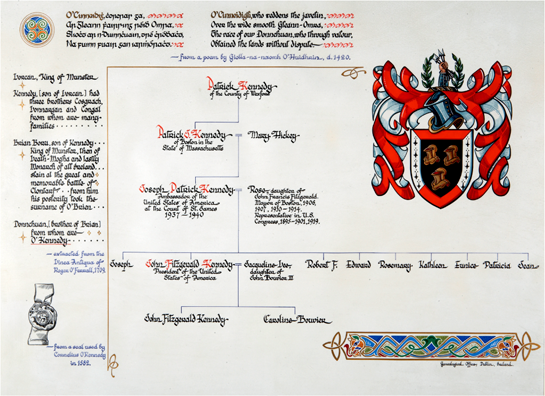 O'Cinnéidig, 
O'Cinneidigh, who reddens the javelin,
Over the wide smooth Gleann-Omra,
The race of our Donnchuan, who through valour,
Obtained the lands without dispute
— from a poem by Giolla-na-naomh O'Huidhrin, d. 1420.
Lorcan, King of Munster
Kennedy, [son of Lorcan,] had
three brothers Cosgrach,
Donnargan and Congal
from whom are many
families
Brian Boru, son of Kennedy
King of Munster, then of
Leath-Mogha and lastly
Monarch of all Ireland
slain at the great and
memorable battle of
Clontarf from him
his posterity took the
surname of O'Brien
Donnchuan [brother of Brian]
from whom are
O'Kennedy
— extracted from the
Linea Antiqua of
Roger O'Ferrall, 1709.
— from a seal used by
Cornelius O'Kennedy
in 1582.
Patrick Kennedy
of the County of Wexford
Patrick J. Kennedy = Mary Hickey
of Boston in the
State of Massachusetts
Joseph Patrick Kennedy =
Ambassador of the
United States of America
at the Court of St. James
1937 – 1940
Rose, daughter of
John Francis Fitzgerald
Mayor of Boston, 1906,
1907, 1910–1914.
Representative in U.S.
Congress, 1895–1901, 1919.
Joseph
John Fitzgerald Kennedy =
President of the United
States of America
Jacqueline Lee,
daughter of
John Bouvier III
Robert F. Edward Rosemary Kathleen Eunice Patricia Jean
John Fitzgerald Kennedy Caroline Bouvier
Genealogical Office, Dublin, Ireland.